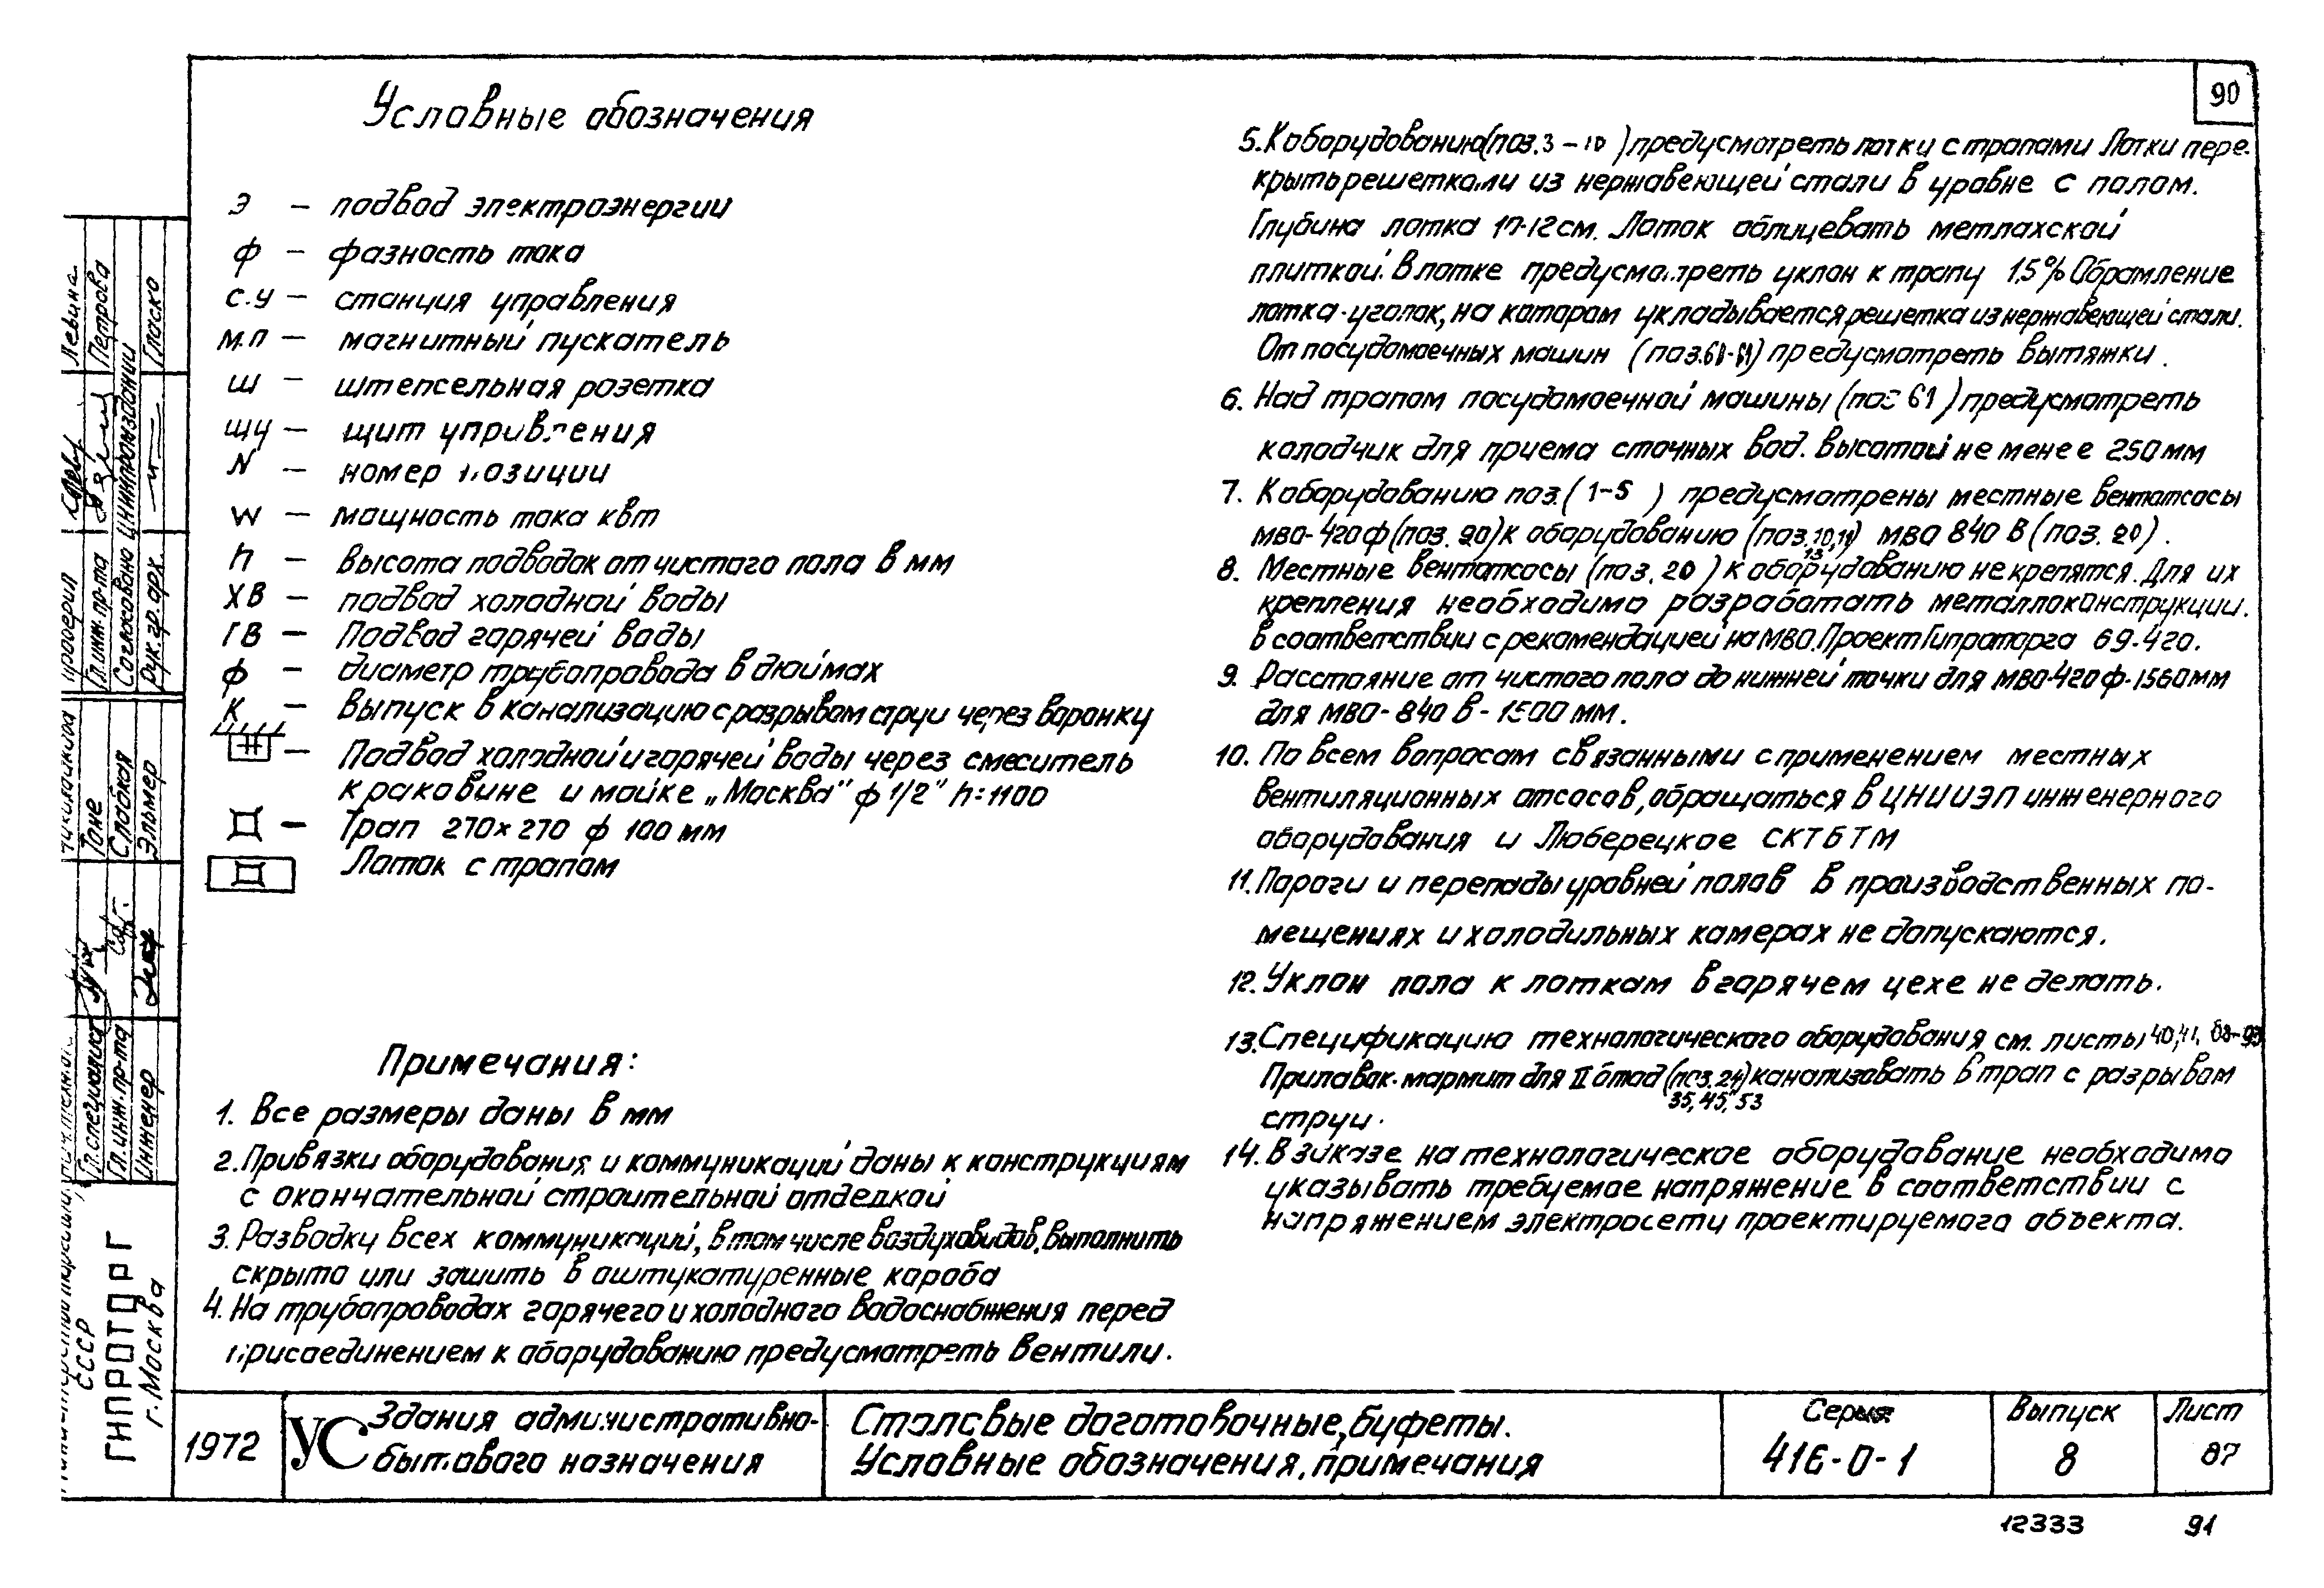 90
Условные обозначения
Э – подвод электроэнергии
ф – фазность тока
с.у – станция управления
м.п – магнитный пускатель
ш – штепсельная розетка
щу – щит управления
N – номер позиции
W – мощность тока квт
h – высота подводок от чистого пола в мм
ХВ – подвод холодной воды
ГВ – Подвод горячей воды
ф – диаметр трубопровода в дюймах
К – Выпуск в канализацию с разрывом струи через воронку
– Подвод холодной и горячей воды через смеситель
к раковине и мойке „Москва" ф 1/2" h=1100
– Трап 270×270 ф 100 мм
Лоток с трапом
Примечания:
1. Все размеры даны в мм
2. Привязки оборудования и коммуникаций даны к конструкциям
с окончательной строительной отделкой
3. Разводку всех коммуникаций, в том числе воздуховодов, выполнить
скрыто или зашить в оштукатуренные короба
4. На трубопроводах горячего и холодного водоснабжения перед
присоединением к оборудованию предусмотреть вентили.
5. К оборудованию (поз. 3–10) предусмотреть лотки с трапами Лотки пере-
крыть решетками из нержавеющей стали в уровне с полом.
Глубина лотка 10-12 см. Лоток облицевать метлахской
плиткой. В лотке предусмотреть уклон к трапу 1,5% Обрамление
лотка-уголок, на котором укладывается решетка из нержавеющей стали.
От посудомоечных машин (поз. ) предусмотреть вытяжки.
6. Над трапом посудомоечной машины (поз 61) предусмотреть
колодчик для приема сточных вод. высотой не менее 250 мм
7. К оборудованию поз. (1-5) предусмотрены местные вентотсосы
МВО-420ф (поз. 20) к оборудованию (поз. 10,11) МВО 840 В (поз. 20).
13
8. Местные вентотсосы (поз. 20) к оборудованию не крепятся. Для их
крепления необходимо разработать металлоконструкции.
в соответствии с рекомендацией на МВО. Проект Гипроторга 69-420.
9. Расстояние от чистого пола до нижней точки для МВО-420ф-1560 мм
для МВО-840 В - 1500 мм.
10. По всем вопросам связанными с применением местных
вентиляционных отсосов, обращаться в ЦНИИЭП инженерного
оборудования и Люберецкое СКТБТМ
11. Пороги и перепады уровней полов в производственных по-
мещениях и холодильных камерах не допускаются.
12. Уклон пола к лоткам в горячем цехе не делать.
13. Спецификацию технологического оборудования см. листы 40,41, 88-93
Прилавок-мармит для II блюд (поз. 24) канализовать в трап с разрывом
35, 45, 53
струи.
14. В заказе на технологическое оборудование необходимо
указывать требуемое напряжение в соответствии с
напряжением электросети проектируемого объекта.
Левина
Петрова
Гласко
Проверил
Гл.инж.пр-та
Согласовано ЦНИИпромзданий
Рук.гр.арх.
Тоне
Слабкая
Эльмер
Гл.специалист
Гл.инж.пр-та
Инженер
СССР
ГИПРОТОРГ
г. Москва
1972
УС
Здания административно-
бытового назначения
Столовые доготовочные, буфеты.
Условные обозначения, примечания
Серия
416-0-1
Выпуск
8
Лист
87
12333
91